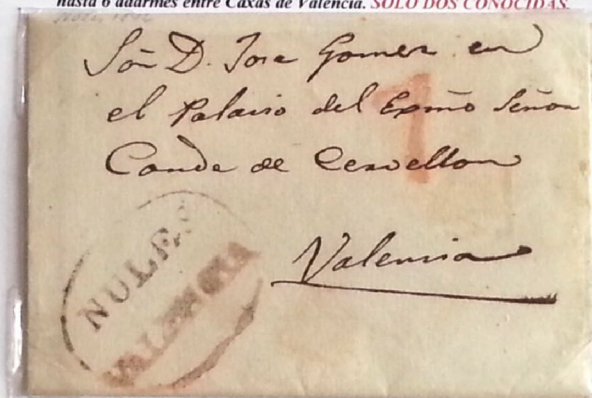 hasta 6 adarmes entre Caxas de Valencia. SOLO DOS CONOCIDAS.
Sōr D. Jose Gomez en
el Palacio del Exmō Señor
Conde de Cervellon
Valencia
1
NULES
VALENCIA